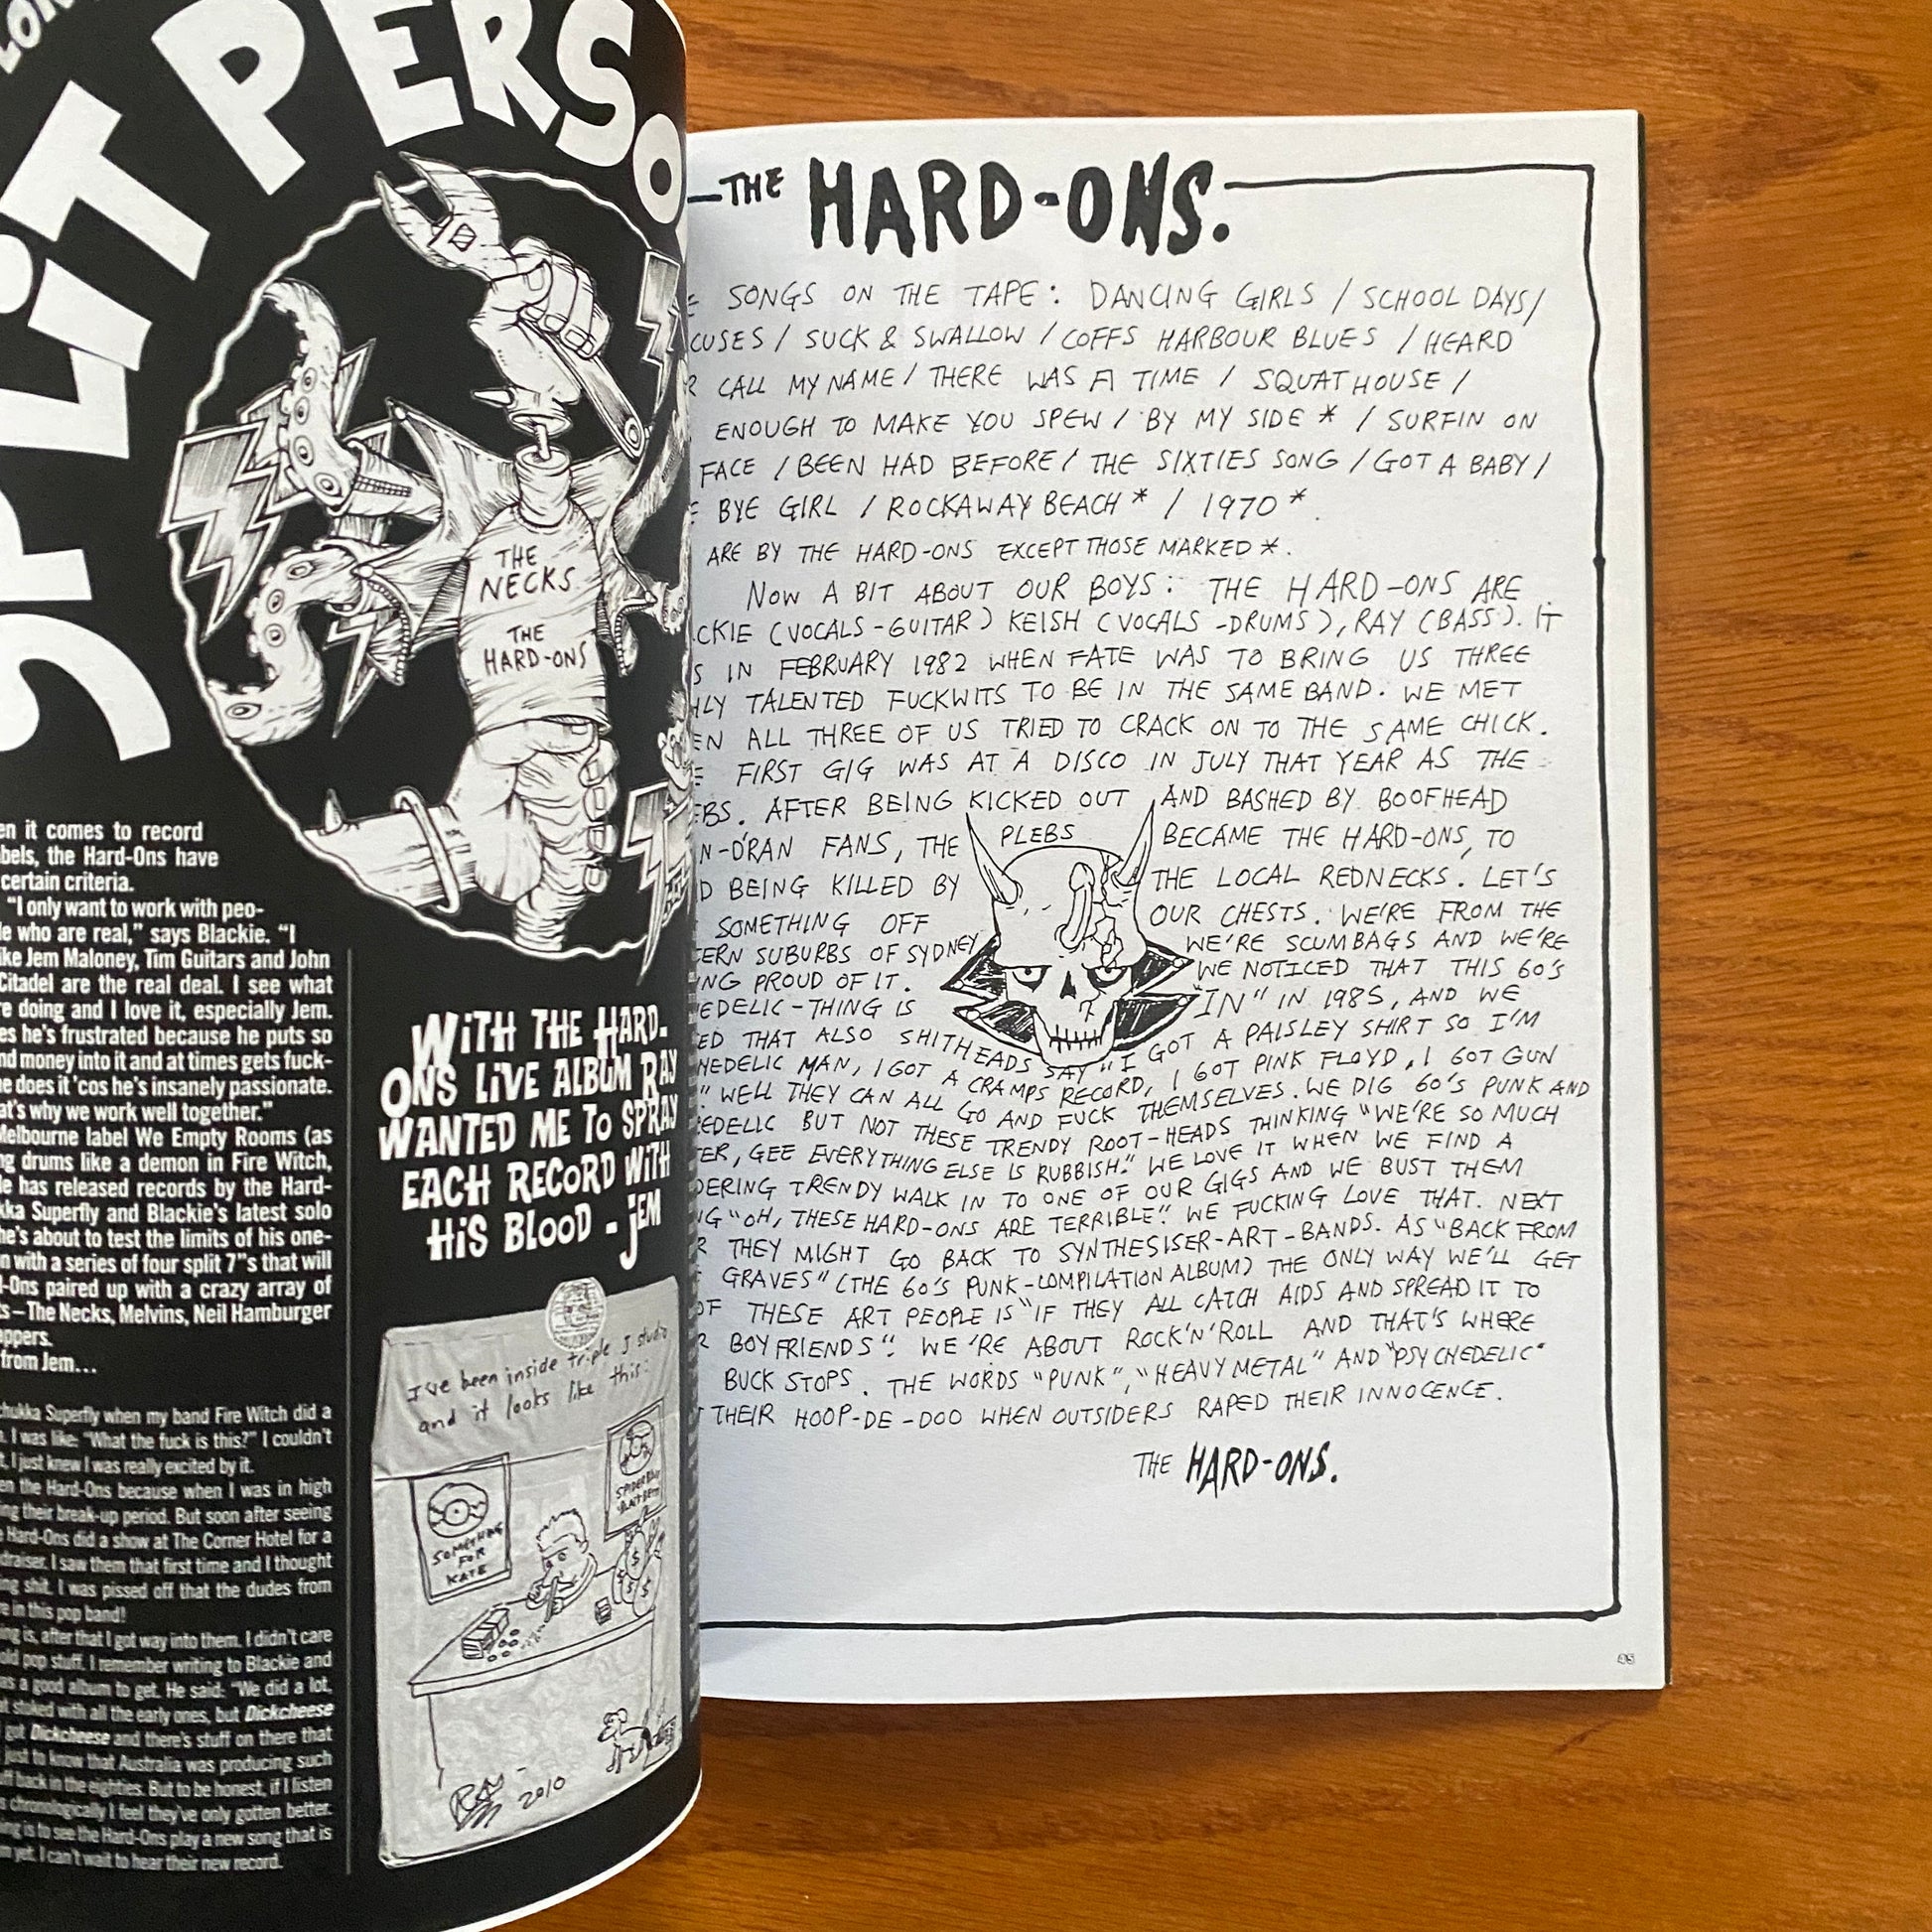 SPLIT PERSO
THE
NECKS
THE
HARD-ONS
it comes to record
the Hard-Ons have
certain criteria.
"I only want to work with peo-
who are real," says Blackie. "I
Jem Maloney, Tim Guitars and John
Citadel are the real deal. I see what
doing and I love it, especially Jem.
he's frustrated because he puts so
money into it and at times gets fuck-
he does it 'cos he's insanely passionate.
why we work well together."
Melbourne label We Empty Rooms (as
drums like a demon in Fire Witch,
has released records by the Hard-
Superfly and Blackie's latest solo
he's about to test the limits of his one-
with a series of four split 7"s that will
paired up with a crazy array of
– The Necks, Melvins, Neil Hamburger
from Jem...
Superfly when my band Fire Witch did a
I was like: "What the fuck is this?" I couldn't
I just knew I was really excited by it.
the Hard-Ons because when I was in high
their break-up period. But soon after seeing
Hard-Ons did a show at The Corner Hotel for a
I saw them that first time and I thought
shit. I was pissed off that the dudes from
in this pop band!
is, after that I got way into them. I didn't care
old pop stuff. I remember writing to Blackie and
a good album to get. He said: "We did a lot,
stoked with all the early ones, but Dickcheese
got Dickcheese and there's stuff on there that
just to know that Australia was producing such
back in the eighties. But to be honest, if I listen
chronologically I feel they've only gotten better.
is to see the Hard-Ons play a new song that is
yet. I can't wait to hear their new record.
WITH THE HARD-
ONS LIVE ALBUM RAY
WANTED ME TO SPRAY
EACH RECORD WITH
HIS BLOOD - JEM
I've been inside triple J studio
and it looks like this:
SOMETHING
FOR
KATE
RAY -
2010
THE HARD-ONS.
SONGS ON THE TAPE: DANCING GIRLS / SCHOOL DAYS /
CUSES / SUCK & SWALLOW / COFFS HARBOUR BLUES / HEARD
CALL MY NAME / THERE WAS A TIME / SQUAT HOUSE /
ENOUGH TO MAKE YOU SPEW / BY MY SIDE * / SURFIN ON
FACE / BEEN HAD BEFORE / THE SIXTIES SONG / GOT A BABY /
BYE GIRL / ROCKAWAY BEACH * / 1970 *.
ARE BY THE HARD-ONS EXCEPT THOSE MARKED *.
NOW A BIT ABOUT OUR BOYS: THE HARD-ONS ARE
CKIE (VOCALS-GUITAR) KEISH (VOCALS-DRUMS), RAY (BASS). IT
IN FEBRUARY 1982 WHEN FATE WAS TO BRING US THREE
TALENTED FUCKWITS TO BE IN THE SAME BAND. WE MET
ALL THREE OF US TRIED TO CRACK ON TO THE SAME CHICK.
FIRST GIG WAS AT A DISCO IN JULY THAT YEAR AS THE
EBS. AFTER BEING KICKED OUT AND BASHED BY BOOFHEAD
N-DRAN FANS, THE PLEBS BECAME THE HARD-ONS, TO
BEING KILLED BY THE LOCAL REDNECKS. LET'S
SOMETHING OFF OUR CHESTS. WE'RE FROM THE
TERN SUBURBS OF SYDNEY WE'RE SCUMBAGS AND WE'RE
ING PROUD OF IT. WE NOTICED THAT THIS 60'S
EDELIC-THING IS "IN" IN 1985, AND WE
ED THAT ALSO SHITHEADS SAY "I GOT A PAISLEY SHIRT SO I'M
HEDELIC MAN, I GOT A CRAMPS RECORD, I GOT PINK FLOYD, I GOT GUN
" WELL THEY CAN ALL GO AND FUCK THEMSELVES. WE DIG 60'S PUNK AND
EDELIC BUT NOT THESE TRENDY ROOT-HEADS THINKING "WE'RE SO MUCH
TER, GEE EVERYTHING ELSE IS RUBBISH." WE LOVE IT WHEN WE FIND A
DERING TRENDY WALK IN TO ONE OF OUR GIGS AND WE BUST THEM
NG "OH, THESE HARD-ONS ARE TERRIBLE". WE FUCKING LOVE THAT. NEXT
THEY MIGHT GO BACK TO SYNTHESISER-ART-BANDS. AS "BACK FROM
GRAVES" (THE 60'S PUNK-COMPILATION ALBUM) THE ONLY WAY WE'LL GET
OF THESE ART PEOPLE IS "IF THEY ALL CATCH AIDS AND SPREAD IT TO
BOYFRIENDS". WE'RE ABOUT ROCK'N'ROLL AND THAT'S WHERE
BUCK STOPS. THE WORDS "PUNK", "HEAVY METAL" AND "PSYCHEDELIC"
THEIR HOOP-DE-DOO WHEN OUTSIDERS RAPED THEIR INNOCENCE.
THE HARD-ONS.
45